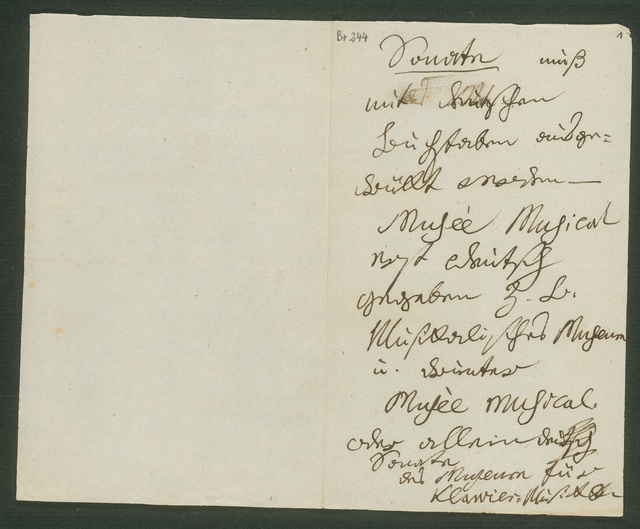 Br 244
1
Sonate muß
mit deutschen
Buchstaben ausge=
drückt werden —
Musée Musical
erst deutsch
gegeben z. B.
Musikalisches Museum
u. drunter
Musée musical.
oder allein deutsch
Sonate
des Museum für
Klavier-Musik